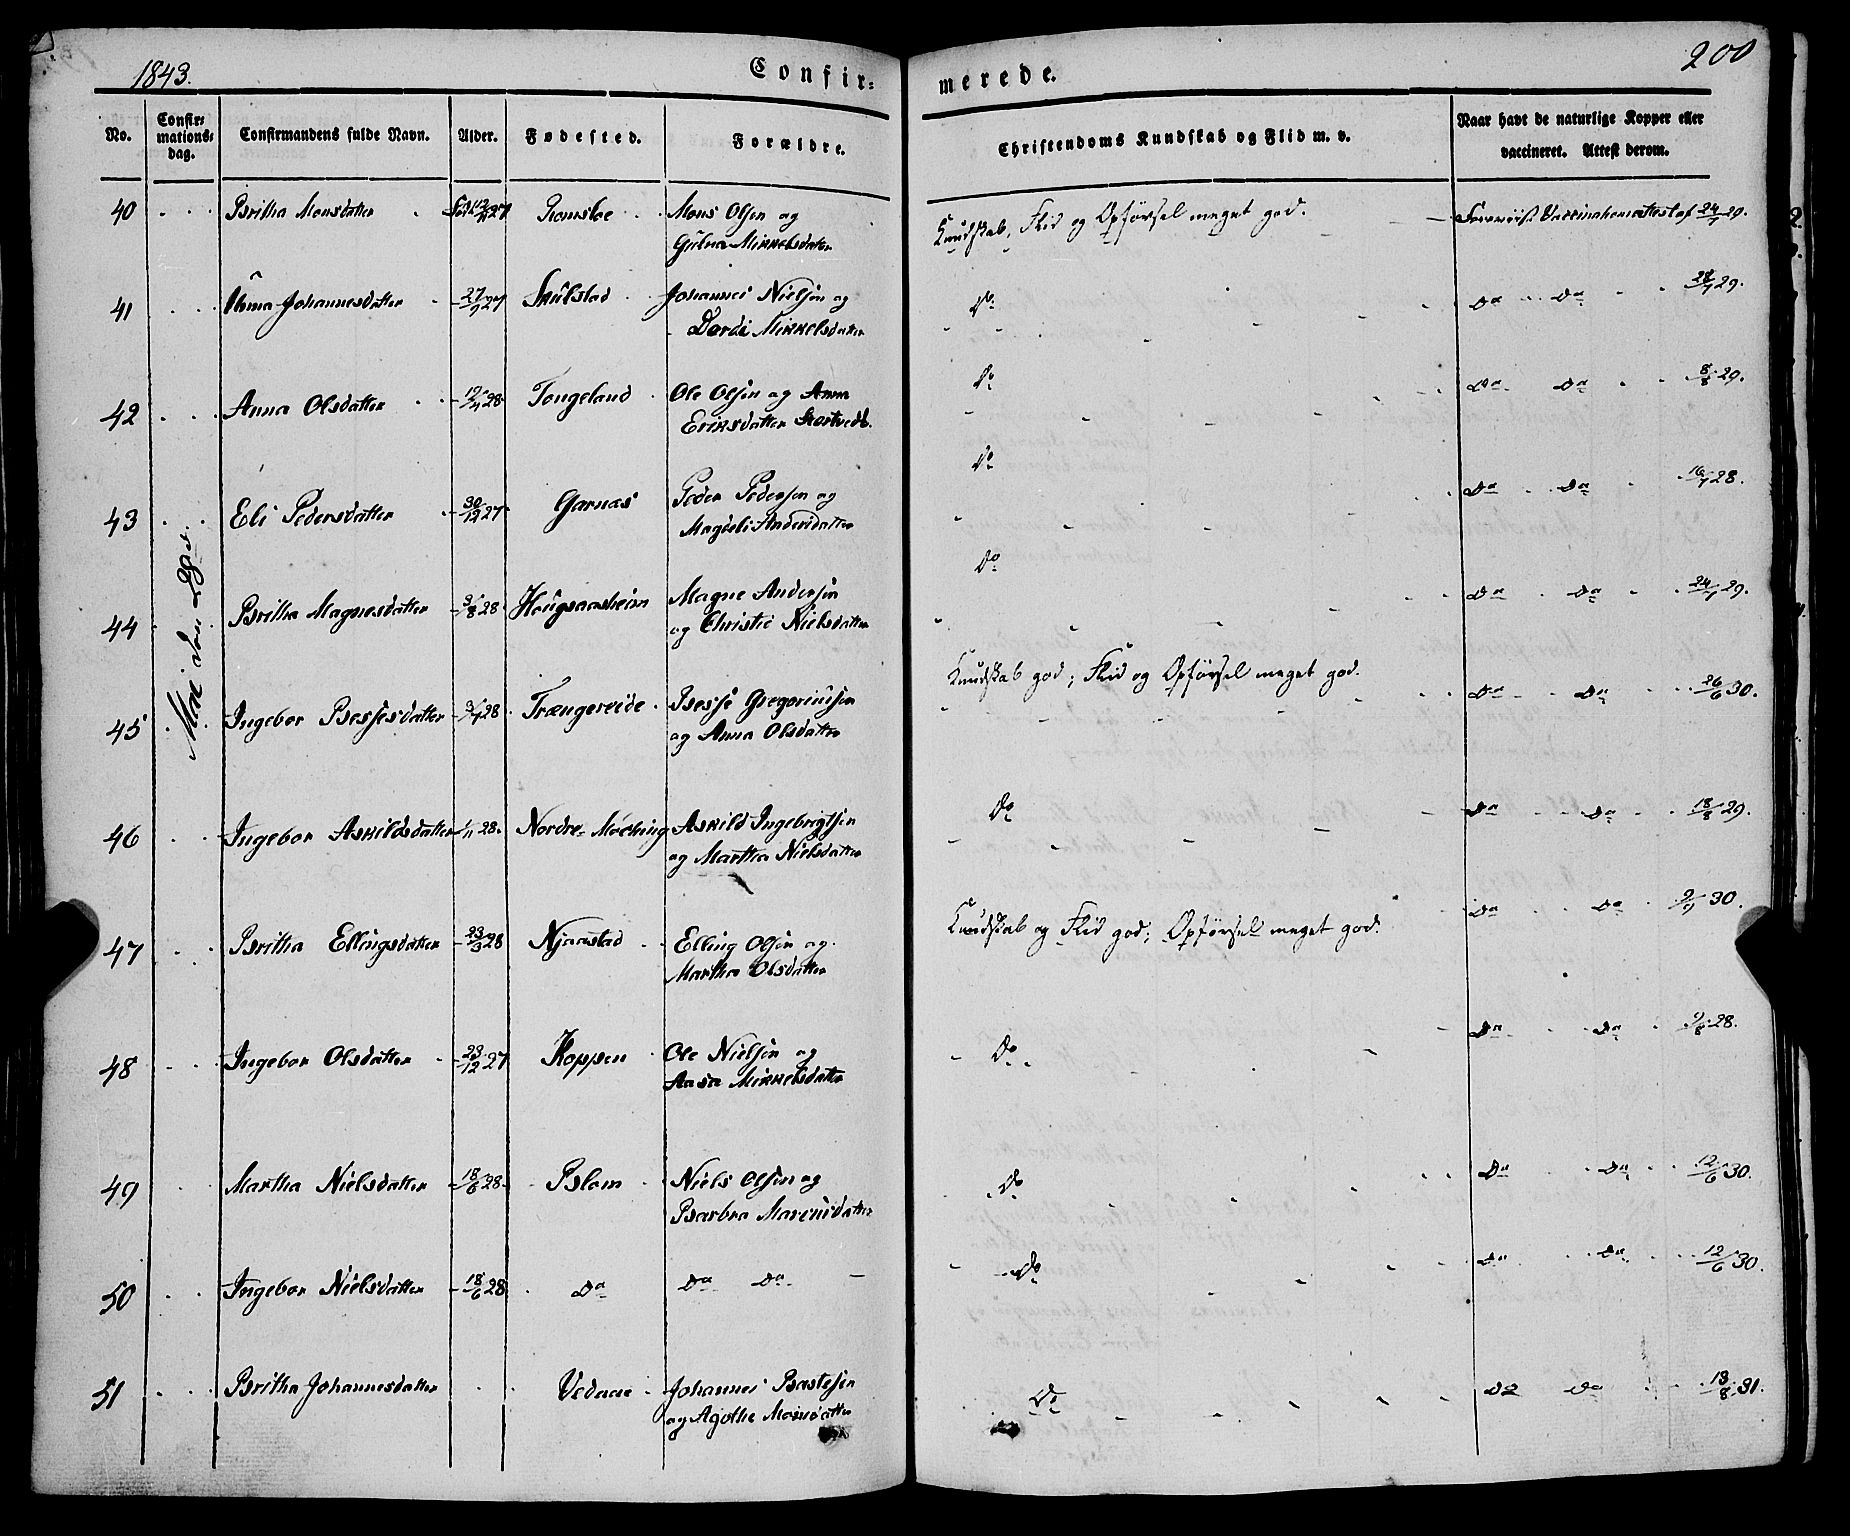 1843.
Confir-
merede.
200
No.
Confir-
mations-
dag.
Confirmandens fulde Navn.
Alder.
Fødested.
Forældre.
Christendoms Kundskab og Flid m. v.
Naar havt de naturlige Kopper eller
vaccineret. Attest derom.
Mai den 28de
40 Britha Monsdatter 27 Romsloe Mons Olsen og
Gülna Mikkelsdatter
Kundskab, Flid og Opførsel meget god. Vaccinationsattest af 24/7 29.
41 Anna Johannesdatter 27/9 27 Skülstad Johannes Nielsen og
Dordi Mikkelsdatter
Do Do Do 28/7 29.
42 Anna Olsdatter 12/4 28 Tongeland Ole Olsen og Anna
Eriksdatter
Do Do Do 8/8 29.
43 Eli Pedersdatter 30/12 27 Garnas Peder Pedersen og
Magdeli Andersdatter
Do Do Do 16/7 28.
44 Britha Magnesdatter 3/8 28 Hougsaasheim Magne Andersen
og Christie Nielsdatter
Do Do Do 24/7 29.
45 Ingebor Bessesdatter 3/7 28 Trængereide Besse Gregoriusen
og Anna Olsdatter
Kundskab god; Flid og Opførsel meget god. Do Do 26/6 30.
46 Ingebor Askildsdatter 1/11 28. Nordre Askild Ingebrigtsen
og Martha Nielsdatter
Do Do Do 18/8 29.
47 Britha Ellingsdatter 23/3 28 Njaastad Elling Olsen og
Martha Olsdatter
Kundskab og Flid god; Opførsel meget god. Do Do 9/9 30.
48 Ingebor Olsdatter 23/12 27 Koppen Ole Nielsen og
Aasa Mikkelsdatter
Do Do Do 9/8 28.
49 Martha Nielsdatter 18/6 28 Blom Niels Olsen og
Barbra Marcusdatter
Do Do Do 12/6 30.
50 Ingebor Nielsdatter 18/6 28 Do Do Do
Do Do Do 12/6 30.
51 Britha Johannesdatter Vedaae Johannes Bastesen
og Agothe Monsdatter
Do Do Do 13/8 31.